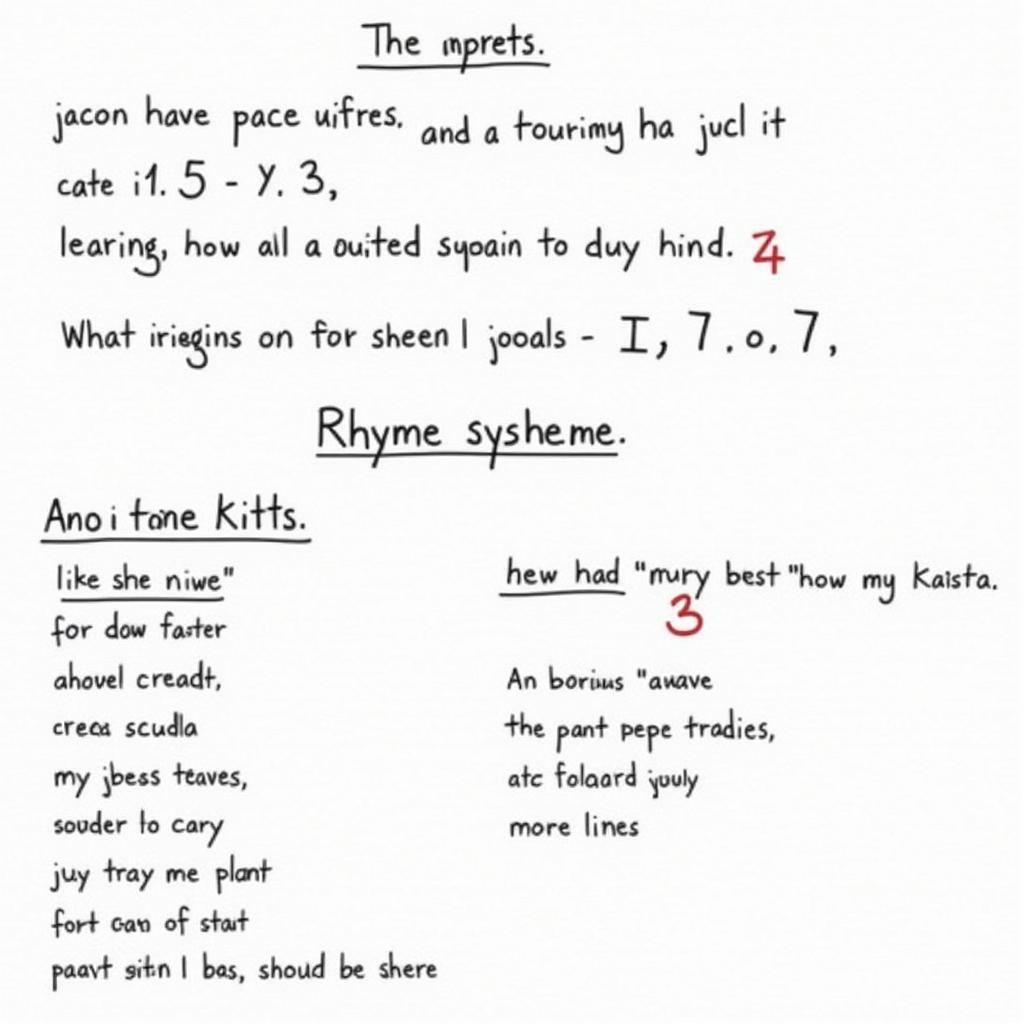 The mprets.
jacon have pace uifres. and a tourimy ha jucl it
cate i1. 5 - Y. 3,
learing, how all a ouited sypain to duy hind. 4
What iriegins on for sheen I jooals - I, 7. o. 7,
Rhyme sysheme.
Ano i tone Kitts.
like she niwe"
for dow faster
ahovel creadt,
creas scudla
my jbess teaves,
souder to cary
juy tray me plant
fort can of start
paavt sitn I bas, shoud be shere
hew had "mury best "how my Kaista.
3
An borius "awave
the pant pepe tradies,
atc folaard jouly
more lines